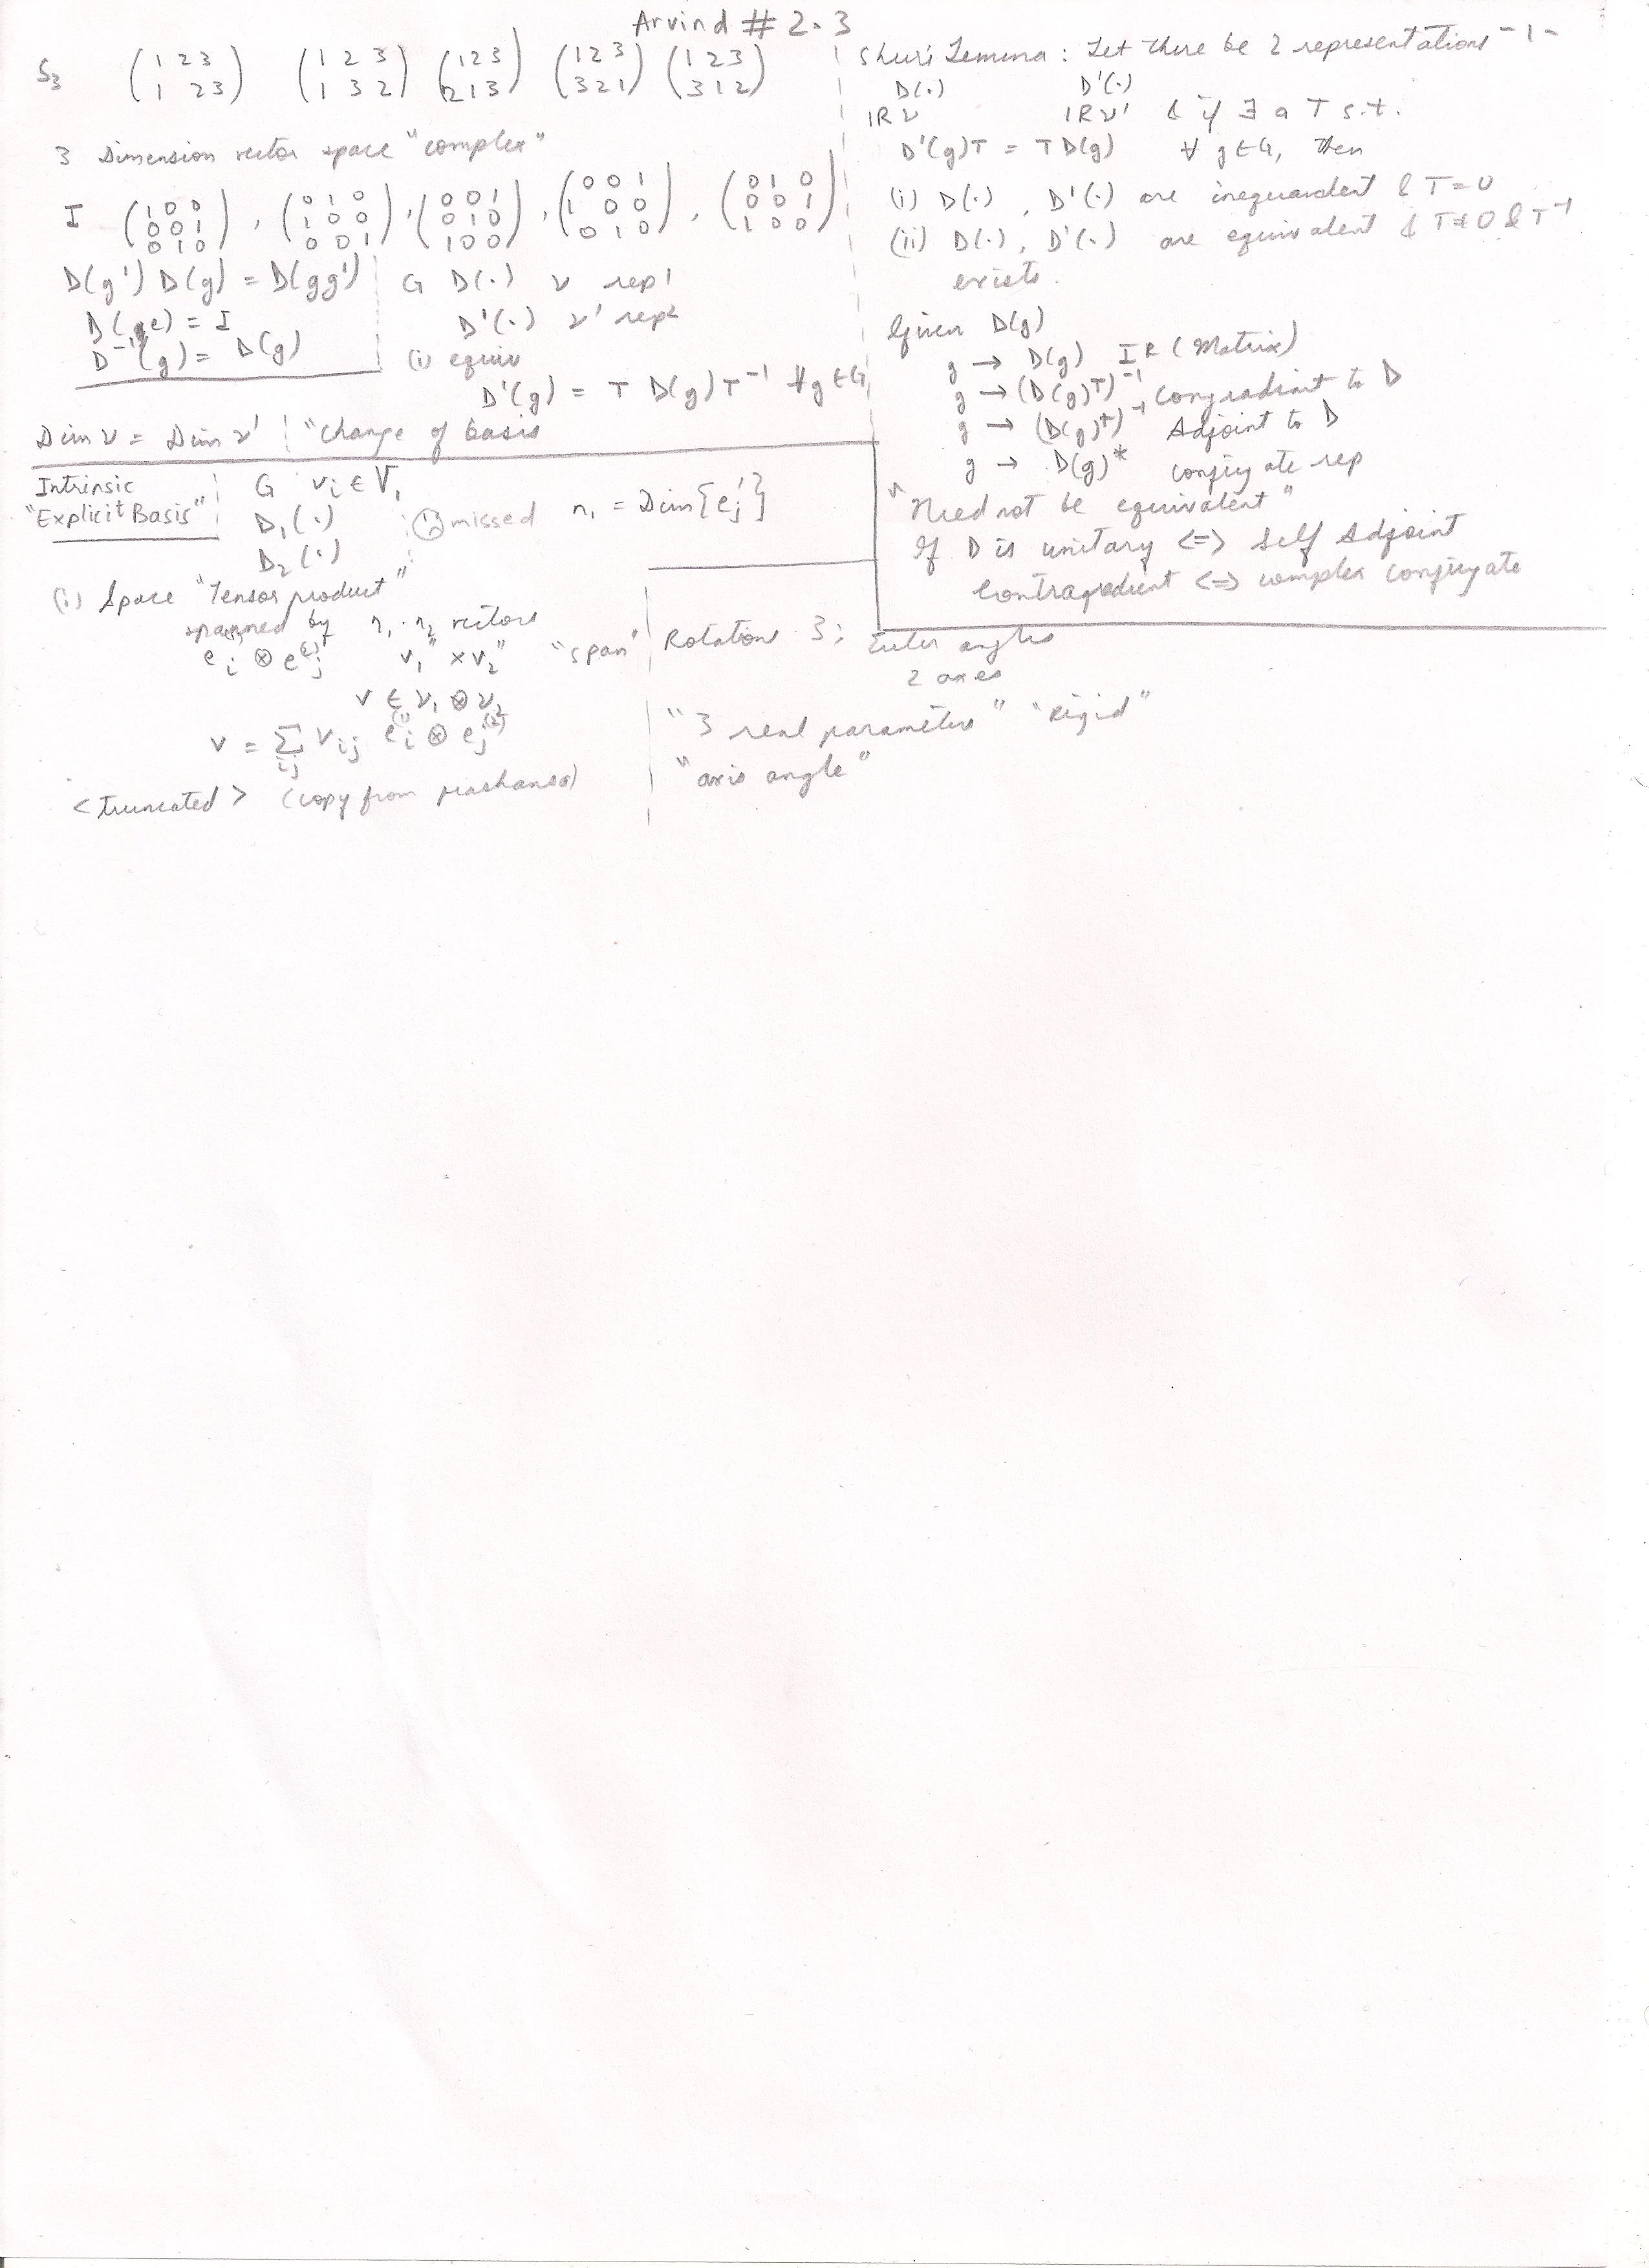 Arvind # 2.3
S3 (1 2 3 / 1 2 3) (1 2 3 / 1 3 2) (1 2 3 / 2 1 3) (1 2 3 / 3 2 1) (1 2 3 / 3 1 2)
3 Dimension vector space "complex"
I (1 0 0 / 0 0 1 / 0 1 0), (0 1 0 / 1 0 0 / 0 0 1), (0 0 1 / 0 1 0 / 1 0 0), (0 0 1 / 1 0 0 / 0 1 0), (0 1 0 / 0 0 1 / 1 0 0)
D(g') D(g) = D(gg')
D(e) = I
D⁻¹(g) = D(g)
G D(·) ν rep1
D'(·) ν' rep2
(i) equiv
D'(g) = T D(g) T⁻¹ ∀ g ∈ G
Dim ν = Dim ν' | "Change of basis
Intrinsic
"Explicit Basis"
G vi ∈ V1
D1(·)
D2(·)
missed n1 = Dim{e'j}
(i) Space "Tensor product"
spanned by n1 · n2 vectors
ei ⊗ ej(2) "v1 × v2" "span"
v ∈ ν1 ⊗ ν2
v = Σij vij ei(1) ⊗ ej(2)
<truncated> (copy from prashansa)
Shur's Lemma : Let there be 2 representations -1-
D(·) D'(·)
IR ν IR ν' & if ∃ a T s.t.
D'(g)T = T D(g) ∀ g ∈ G, then
(i) D(·), D'(·) are inequivalent & T = 0
(ii) D(·), D'(·) are equivalent & T ≠ 0 & T⁻¹
exists.
Given D(g)
g → D(g) IR (Matrix)
g → (D(g)ᵀ)⁻¹ Congradient to D
g → (D(g)†)⁻¹ Adjoint to D
g → D(g)* conjugate rep
"Need not be equivalent"
If D is unitary <=> Self Adjoint
Contragradient <=> complex conjugate
Rotations 3: Euler angles
2 axes
"3 real parameters" "Rigid"
"axis angle"